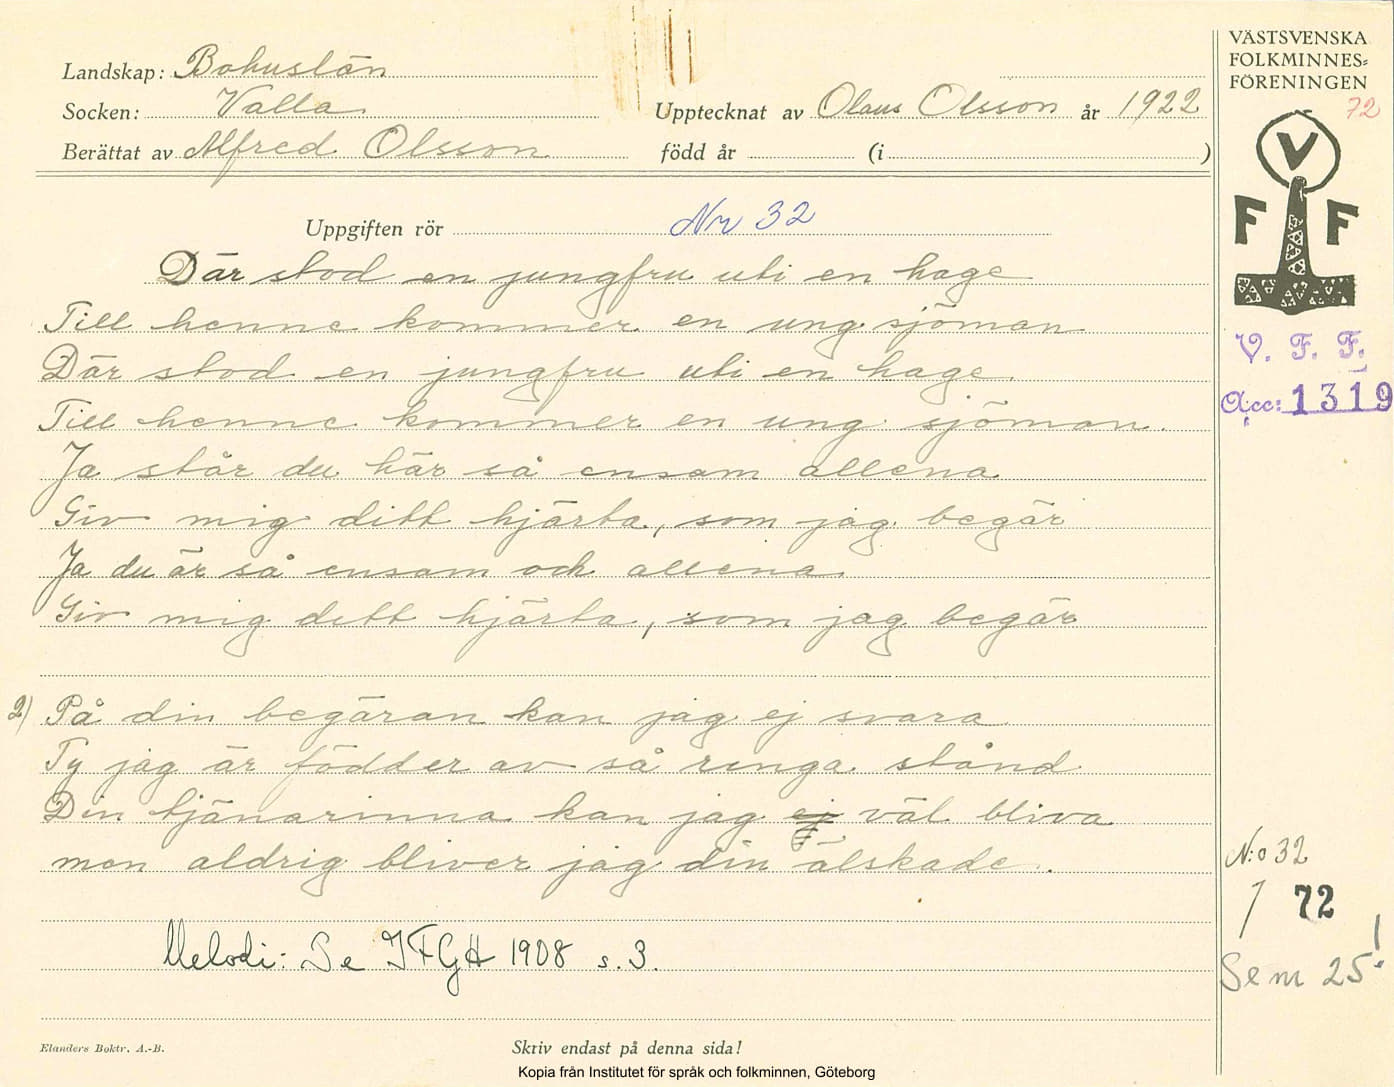 Landskap: Bohuslän
Socken: Valla
Upptecknat av Olaus Olsson år 1922
Berättat av Alfred Olsson född år (i )
VÄSTSVENSKA
FOLKMINNES=
FÖRENINGEN
72
V
F F
V. F. F.
Acc: 1319
Uppgiften rör Nr 32
Där stod en jungfru uti en hage
Till henne kommer en ung sjöman
Där stod en jungfru uti en hage
Till henne kommer en ung sjöman.
Ja står du här så ensam allena
Giv mig ditt hjärta, som jag begär
Ja du är så ensam och allena
Giv mig ditt hjärta, som jag begär
2) På din begäran kan jag ej svara
Ty jag är födder av så ringa stånd
Din tjänarinna kan jag ej väl bliva
men aldrig bliver jag din älskade.
Melodi: Se IFGH 1908 s. 3.
N:o 32
/ 72
Se nr 25!
Elanders Boktr. A.-B.
Skriv endast på denna sida!
Kopia från Institutet för språk och folkminnen, Göteborg